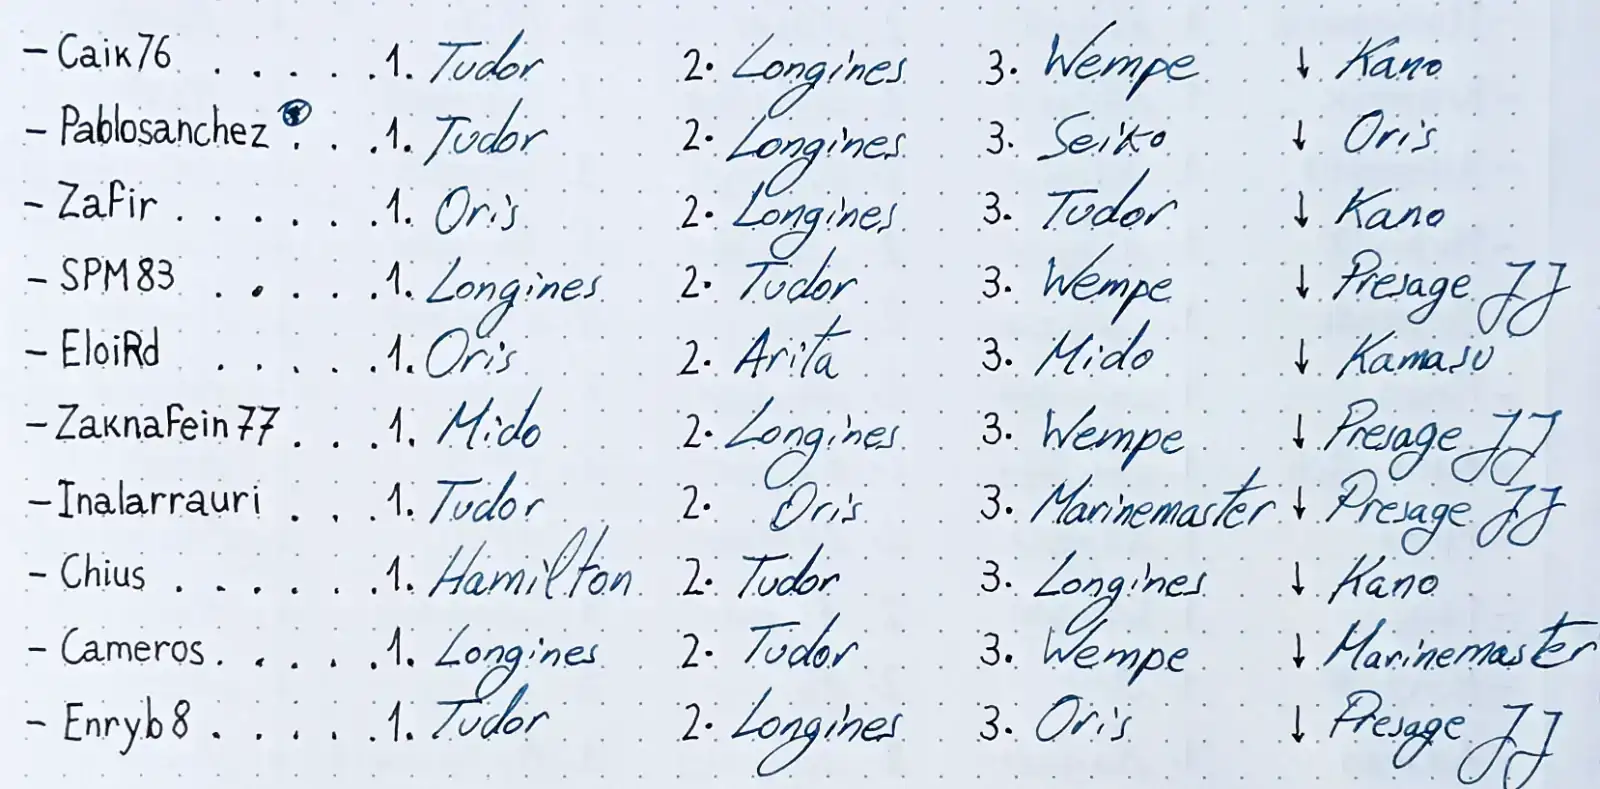 - Caik76 . . . . . . 1. Tudor 2. Longines 3. Wempe ↓ Kano
- Pablosanchez . . . 1. Tudor 2. Longines 3. Seiko ↓ Oris
- Zafir . . . . . . 1. Oris 2. Longines 3. Tudor ↓ Kano
- SPM83 . . . . . 1. Longines 2. Tudor 3. Wempe ↓ Presage JJ
- EloiRd . . . . . 1. Oris 2. Arita 3. Mido ↓ Kamasu
- Zaknafein77 . . . 1. Mido 2. Longines 3. Wempe ↓ Presage JJ
- Inalarrauri . . . 1. Tudor 2. Oris 3. Marinemaster ↓ Presage JJ
- Chius . . . . . . 1. Hamilton 2. Tudor 3. Longines ↓ Kano
- Cameros . . . . . 1. Longines 2. Tudor 3. Wempe ↓ Marinemaster
- Enryb8 . . . . . 1. Tudor 2. Longines 3. Oris ↓ Presage JJ